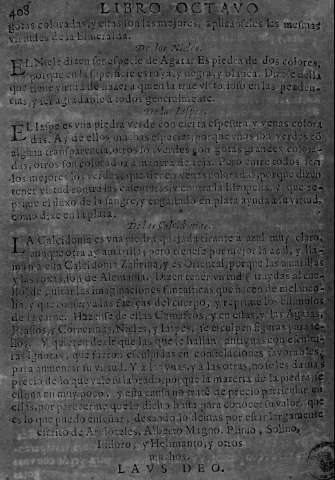 408 LIBRO OCTAVO
gotas coloradas, y estas son las mejores, aplicanseles las mesmas
virtudes de la Esmeralda.
De los Nicles.
EL Nicle dizen ser especie de Agata. Es piedra de dos colores,
porque en la superficie es roxa, y negra, y blanca. Dizese della
que tiene virtud de hazer a quien la trae vitorioso en las penden-
cias, y ser agradable a todos generalmente.
De los Iaspes.
EL Iaspe es vna piedra verde con cierta espesura y venas colora
das. Ay de ellos muchas especies, porque vnos son verdes con
alguna transparencia, otros son verdes con gotas grandes colora-
das, otros son colorados a manera de teja. Pero entre todos son
los mejores los verdes, que tienen venas coloradas, porque dizen
tener virtud contra las calenturas, y contra la hidropesia, y que
el fluxo de la sangre, y engastado en plata ayuda a su virtud,
como dixe en la plata.
De las Calcidonias.
LA Calcidonia es vna piedra quajada tirante a azul muy claro,
aunque otra ay amarilla, pero tienese por mejor la azul, y lla-
man a esta Calcidonia Zafirina, y es Oriental, porque las amarillas
y las roxas, son de Alemania. Dizen tener virtud traydas al cue-
llo de quitar las imaginaciones fantasticas que nacen de melanco-
lia, y que conserva las fuerças del cuerpo, y reprime los estimulos
de la carne. Hazense de ellas Camafeos, y en ellas, y las Agatas,
Rubios, y Cornerinas, Nicles, y Iaspes, se esculpen figuras para se-
llos. Y quieren dezir que las que se hallan antiguas con escultu-
ras ignotas, que fueron esculpidas en constelaciones favorables,
para aumentar su virtud. Y a las vnas, y a las otras, no les damas
precio de lo que vale su labrado, porque la materia de la piedra se
estima en muy poco, y esta causa no traté de precio particular en
ellas, por parecerme que lo dicho basta para conocer su valor, que
es lo que puedo enseñar, dexando lo demas por estar largamente
escrito de Aristoteles, Alberto Magno, Plinio, Solino,
Isidoro, y Helinanto, y otros
muchos.
LAVS DEO.